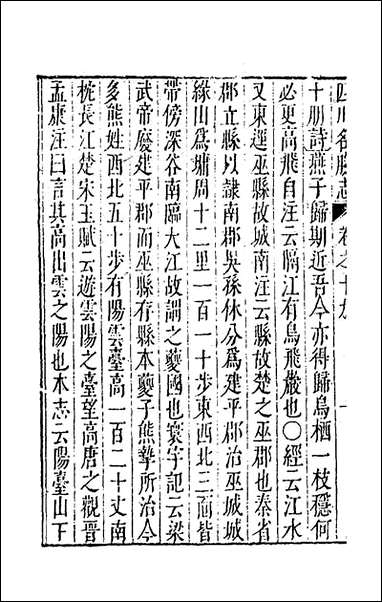 四川名勝志 卷之十九 一
十朋詩燕子歸期近吾今亦得歸鳥棲一枝穩何
必更高飛自注云隔江有鳥飛巖也〇經云江水
又東逕巫縣故城南注云縣故楚之巫郡也秦省
郡立縣以隷南郡吳孫休分爲建平郡治巫城城
緣山爲墉周十二里一百一十步東西北三面皆
帶傍深谷南臨大江故謂之夔國也寰宇記云梁
武帝廢建平郡而巫縣存縣本夔子熊摯所治今
多熊姓西北五十步有陽雲臺高一百二十丈南
枕長江楚宋玉賦云遊雲陽之臺望高唐之觀晉
孟康注曰言其高出雲之陽也本志云陽臺山下